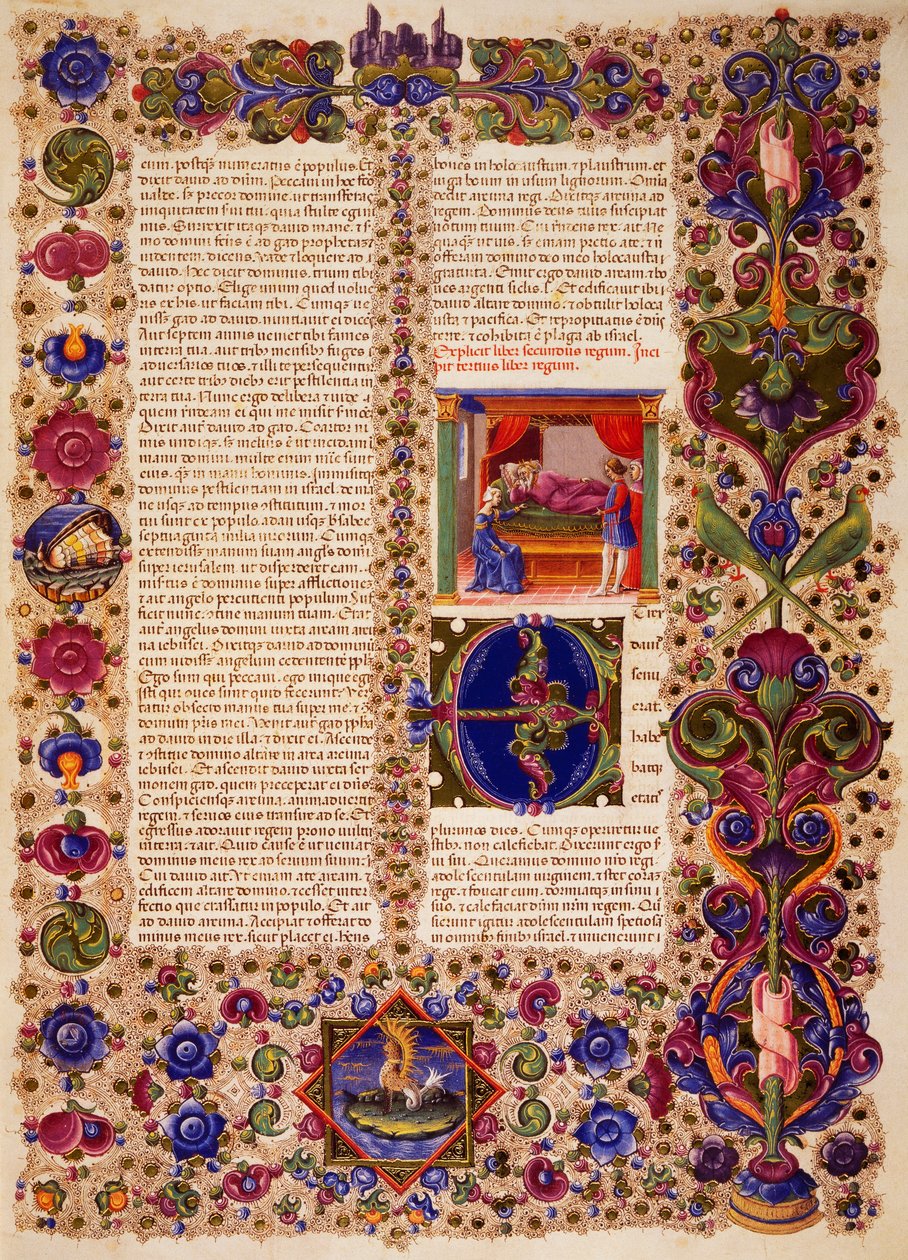 eum. postq̃ numeratus ẽ populus. Et
dixit david ad dñm. Peccavi in hoc fc̃o
valde. sz precor domine. ut transferas
iniquitatem servi tui. quia stulte egi ni
mis. Surrexit itaq̃ david mane. ⁊
mo domini fc̃us ẽ ad gad prophetaz
videntem. dicens. Vade ⁊ loquere ad
david. hec dicit dominus. trium tibi
datur optio. Elige unum quod volue
ris ex his. ut faciam tibi. Cumq̃ ve
nisset gad ad david. nuntiavit ei dicens
Aut septem annis veniet tibi fames
in terra tua. aut tribus mensibus fugies
adversarios tuos. ⁊ illi te persequentur
aut certe tribus diebus erit pestilentia in
terra tua. Nunc ergo delibera ⁊ vide.
quem rñdeam ei qui me misit sermonẽ
Dixit autem david ad gad. Coartor ni
mis undiq̃. sz melius ẽ ut incidam
manu domini. multe enim mĩe sunt
eius. q̃z in manus hominis. Immisitq̃
dominus pestilentiam in israel. de ma
ne usq̃ ad tempus cstitutum. ⁊ mor
tui sunt ex populo. a dan usq̃ bersabee
septuaginta milia virorum. Cumq̃
extendisset manum suam angls domĩ
super ierusalem. ut disperderet eam.
misertus ẽ dominus super afflictione
⁊ ait angelo percutienti populum. Suf
ficit nunc. ⁊tine manum tuam. Erat
aut angelus domini iuxta aream areu
na iebusei. Dixitq̃ david ad dominũ
cum vidisset angelum cedentem ppl̃z
Ego sum qui peccavi. ego iniq̃ egi
Isti qui oves sunt quid fecerunt? Ver
tatur obsecro manus tua super me ⁊
domum pr̃is mei. Venit aut gad ppha
ad david in die illa. ⁊ dixit ei. Ascende
⁊ cstitue domino altare in area areuna
iebusei. Et ascendit david iuxta ser
monem gad. quem preceperat ei dns
Conspiciensq̃ areuna. animadvertit
regem. ⁊ servos eius transire ad se. Et
egressus adoravit regem prono vultu
in terra. ⁊ ait. Quid cause ẽ ut veniat
dominus meus rex ad servum suum?
Cui david ait. Ut emam a te aream. ⁊
edificem altare domino. ⁊ cesset inter
fectio que crassatur in populo. Et ait
ad david areuna. Accipiat ⁊ offerat do
minus meus rex. sicut placet ei. habes
boves in holocaustum. ⁊ plaustrum. et
iuga boum in usum lignorum. Omia
dedit areuna regi. Dixitq̃ areuna ad
regem. Dominus deus tuus suscipiat
votum tuum. Cui rñdens rex. ait. Ne
quaq̃z ut vis. sz emam pretio a te. ⁊ ñ
offeram domino deo meo holocausta
gratuita. Emit ergo david aream. ⁊ bo
ves argenti siclis. l. Et edificavit ibi
david altare domino. ⁊ obtulit holoca
usta ⁊ pacifica. Et repropitiatus ẽ dñs
terre. ⁊ cohibita ẽ plaga ab israel.
Explicit liber secundus regum. Inci
pit tertius liber regum.
E
T rex
david
senu
erat.
habe
batq̃
etatis
plurimos dies. Cumq̃ operiretur ve
stibus. non calefiebat. Dixerunt ergo s
vi sui. Queramus domino nr̃o regi.
adolescentulam virginem. ⁊ stet coraz
rege. ⁊ foveat eum. dormiatq̃ in sinu s
uo. ⁊ calefaciat dñm nr̃m regem. Que
sierunt igitur adolescentulam speciosaz
in omnibus finibus israel. ⁊ invenerunt